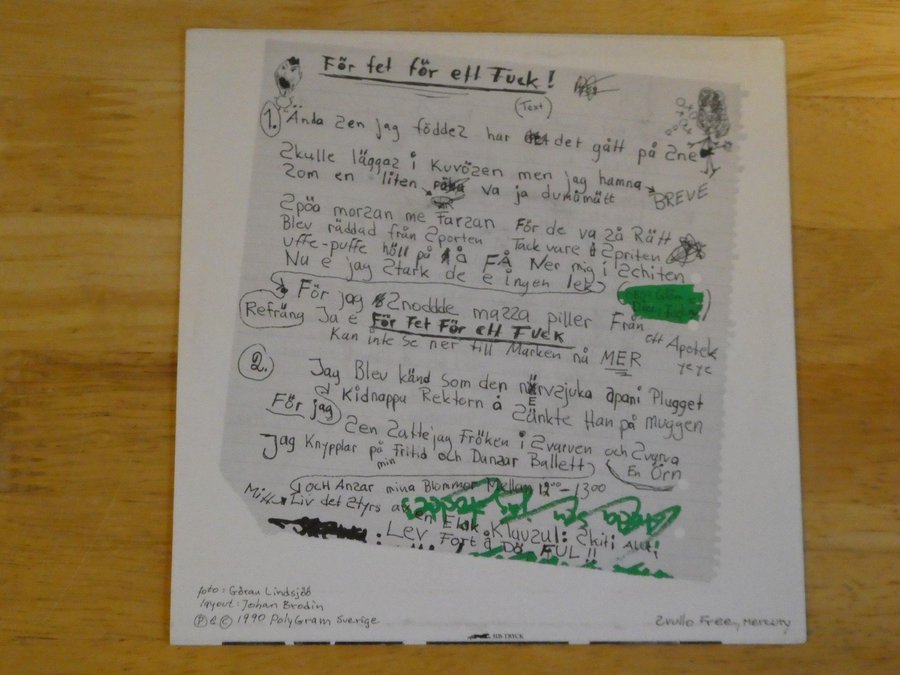 För fet för ett Fuck!
(Text)
1. Ända sen jag föddes har det gått på sne
Skulle läggas i Kuvösen men jag hamna BREVE
Som en liten va ja dum&mätt
Spöa morsan me Farsan För de va så Rätt
Blev räddad från Sporten Tack vare Spriten
Uffe-puffe höll på å FÅ Ner mig i Schiten
Nu e jag Stark de e ingen lek
För jag Snodde massa piller Från ett Apotek
yeye
Refräng Ja e För Fet För ett Fuck
Kan inte Se ner till Marken nå MER
2. Jag Blev känd som den närvsjuka apan i Plugget
Kidnappa Rektorn å Sänkte Han på muggen
För jag
Sen Satte jag Fröken i Svarven och Svarva En Örn
Jag Knypplar på min Fritid och Dansar Ballett
och Ansar mina Blommor Mellan 12⁰⁰-13⁰⁰
Mitt Liv det Styrs av en Elak Klausul: Skit i Allt
: Lev Fort å Dö FUL!!
foto: Göran Lindsjöö
layout: Johan Brodin
Ⓟ & © 1990 PolyGram Sverige
SIB TRYCK
Svullo Free, Mercury